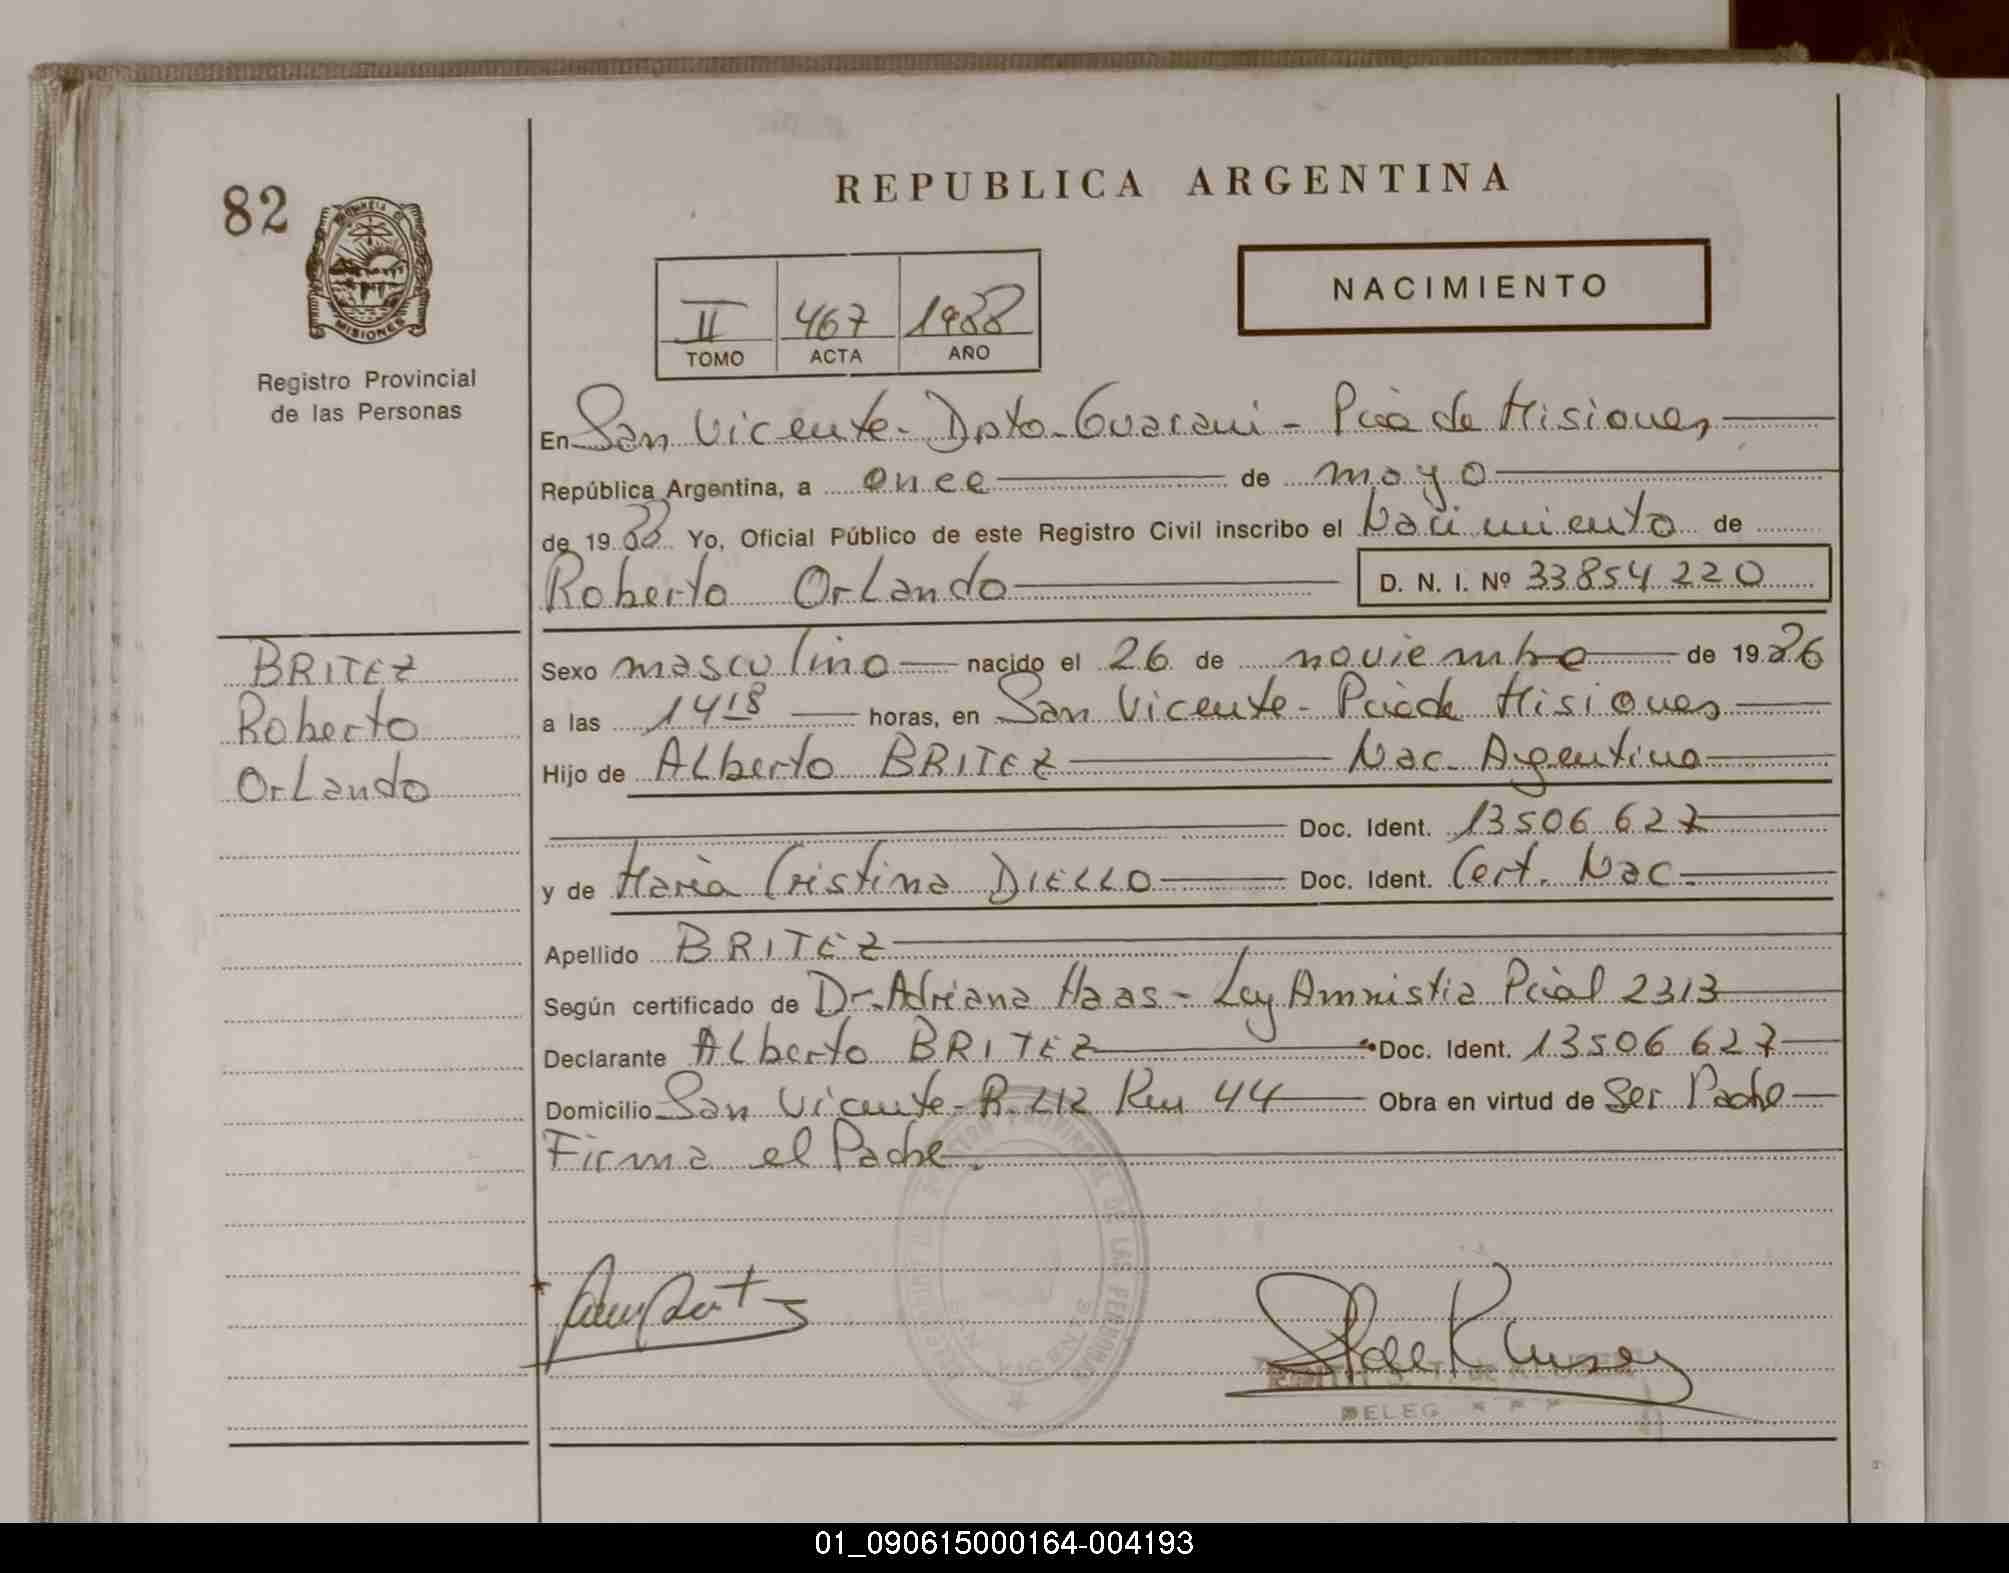 REPUBLICA ARGENTINA
82
PROVINCIA DE
MISIONES
Registro Provincial
de las Personas
NACIMIENTO
II 467 1988
TOMO ACTA AÑO
En San Vicente - Dpto. Guaraní - Pcia de Misiones
República Argentina, a once de mayo
de 1988 Yo, Oficial Público de este Registro Civil inscribo el Nacimiento de
Roberto Orlando D. N. I. Nº 33854220
BRITEZ
Roberto
Orlando
Sexo masculino nacido el 26 de noviembre de 1986
a las 14 18 horas, en San Vicente - Pcia de Misiones
Hijo de Alberto BRITEZ Nac. Argentina
Doc. Ident. 13506627
y de María Cristina DIELLO Doc. Ident. Cert. Nac.
Apellido BRITEZ
Según certificado de Dr. Adriana Haas - Ley Amnistia Pcial 2313
Declarante Alberto BRITEZ Doc. Ident. 13506627
Domicilio San Vicente - R. 212 Km 44 Obra en virtud de Ser Padre
Firma el Padre.
REGISTRO PROVINCIAL DE LAS PERSONAS
DELEG
01_090615000164-004193